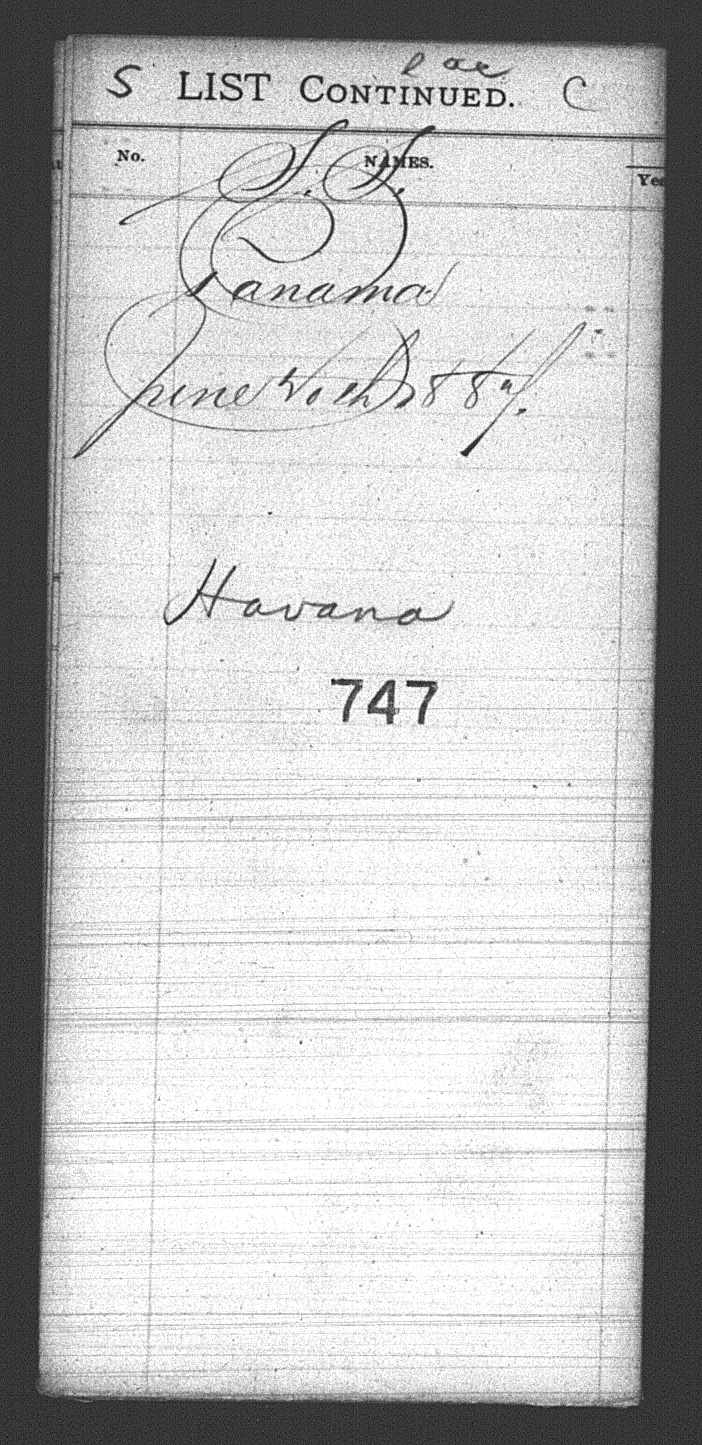 S LIST CONTINUED. C
No. NAMES.
S. S.
Panama
June 1887.
Havana
747